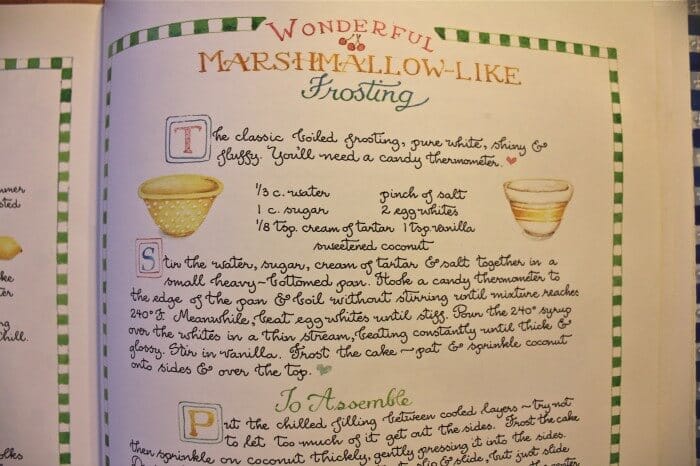 WONDERFUL
MARSHMALLOW-LIKE
Frosting
The classic boiled frosting, pure white, shiny &
fluffy. You'll need a candy thermometer.
1/3 c. water pinch of salt
1 c. sugar 2 egg whites
1/8 tsp. cream of tartar 1 tsp. vanilla
sweetened coconut
Stir the water, sugar, cream of tartar & salt together in a
small heavy-bottomed pan. Hook a candy thermometer to
the edge of the pan & boil without stirring until mixture reaches
240°F. Meanwhile, beat egg whites until stiff. Pour the 240° syrup
over the whites in a thin stream, beating constantly until thick &
glossy. Stir in vanilla. Frost the cake ~ pat & sprinkle coconut
onto sides & over the top.
To Assemble
Put the chilled filling between cooled layers ~ try not
to let too much of it get out the sides. Frost the cake
then sprinkle on coconut thickly, gently pressing it into the sides.
slip & slide, but just slide
ummer
sted
ke
ter
ng
chill.
olks